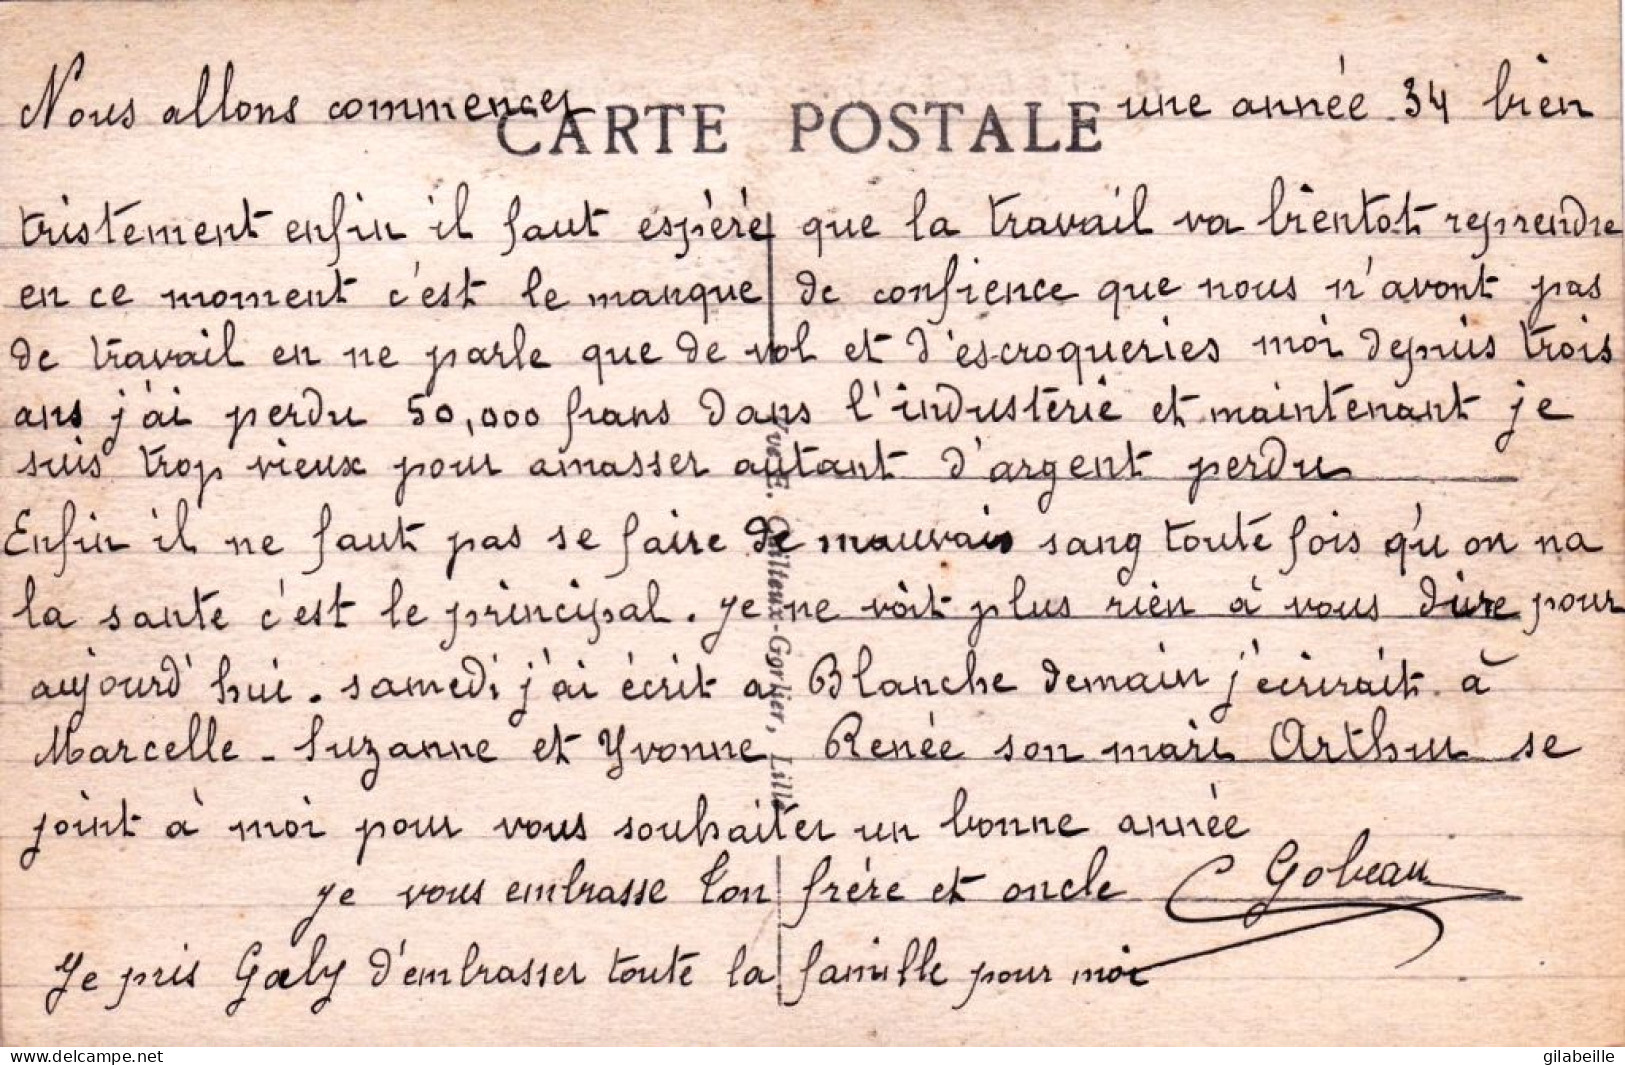 Nous allons commencer une année 34 bien
CARTE POSTALE
tristement enfin il faut espéré que la travail va bientot reprendre
en ce moment c'est le manque de confience que nous n'avont pas
de travail en ne parle que de vol et d'escroqueries moi depuis trois
ans j'ai perdu 50,000 frans dans l'industerie et maintenant je
suis trop vieux pour amasser autant d'argent perdu
Enfin il ne faut pas se faire de mauvais sang toute fois qu'on na
la sante c'est le principal. Je ne voit plus rien à vous dire pour
aujourd'hui. samedi j'ai écrit a Blanche demain j'écrirait à
Marcelle - Suzanne et Yvonne Renée son mari Arthur se
joint à moi pour vous souhaiter un bonne année
je vous embrasse ton frère et oncle C Gobeau
Je pris Gaby d'embrasser toute la famille pour moi
Vve E. Cailteux-Gorlier, Lille
www.delcampe.net
gilabeille